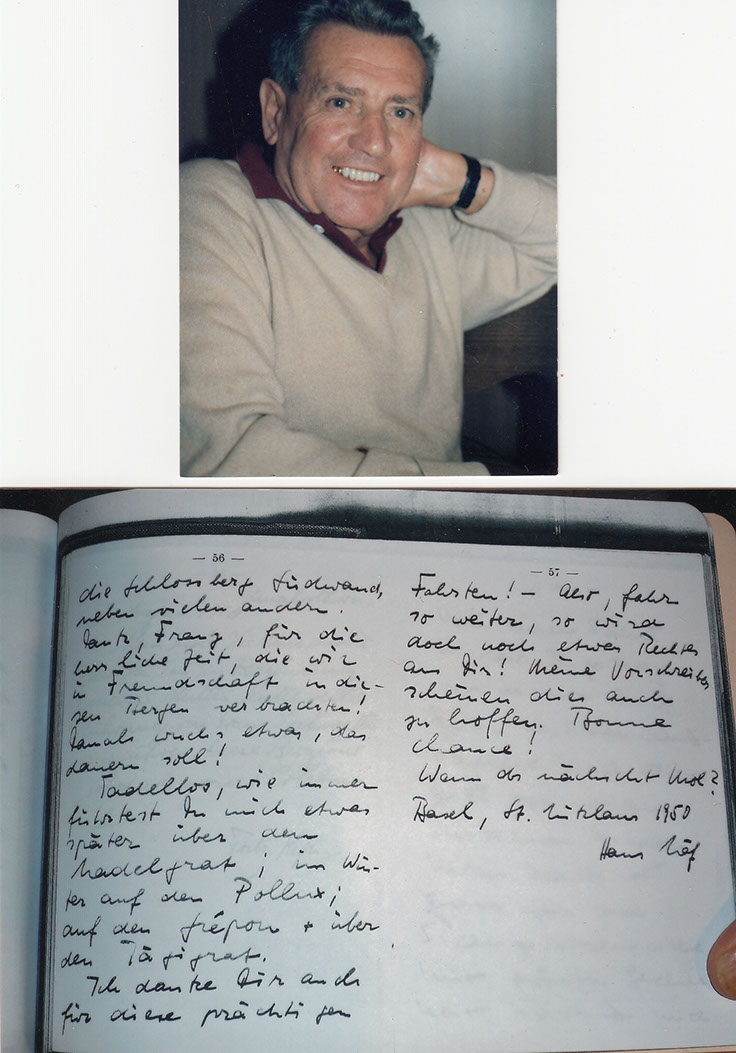 — 56 —
die Schlossberg Südwand,
neben vielen andern.
Dank, Franz, für die
herrliche Zeit, die wir
in Freundschaft in die-
sen Bergen verbrachten!
Damals wuchs etwas, das
dauern soll!
Tadellos, wie immer
führtest Du mich etwas
später über den
Nadelgrat; im Win-
ter auf den Pollux;
auf den Grépon + über
den Tägigrat.
Ich danke Dir auch
für diese prächtigen
— 57 —
Fahrten! – Also, fahr
so weiter, so wird
doch noch etwas Rechtes
aus Dir! Meine Vorschreiber
scheinen dies auch
zu hoffen. Bonne
chance!
Wann ds nächscht Mol?
Basel, St. Niklaus 1950
Hans